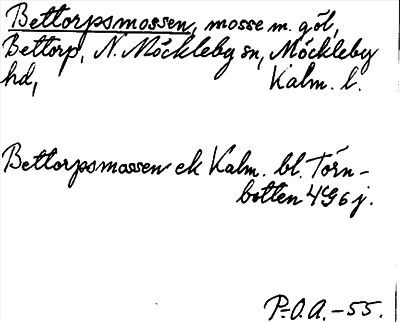 Bettorpsmossen, mosse m. göl,
Bettorp, N. Möckleby sn, Möckleby
hd, Kalm. l.
Bettorpsmossen ek Kalm. bl. Törn-
botten 4G6j.
P-O.A. -55.